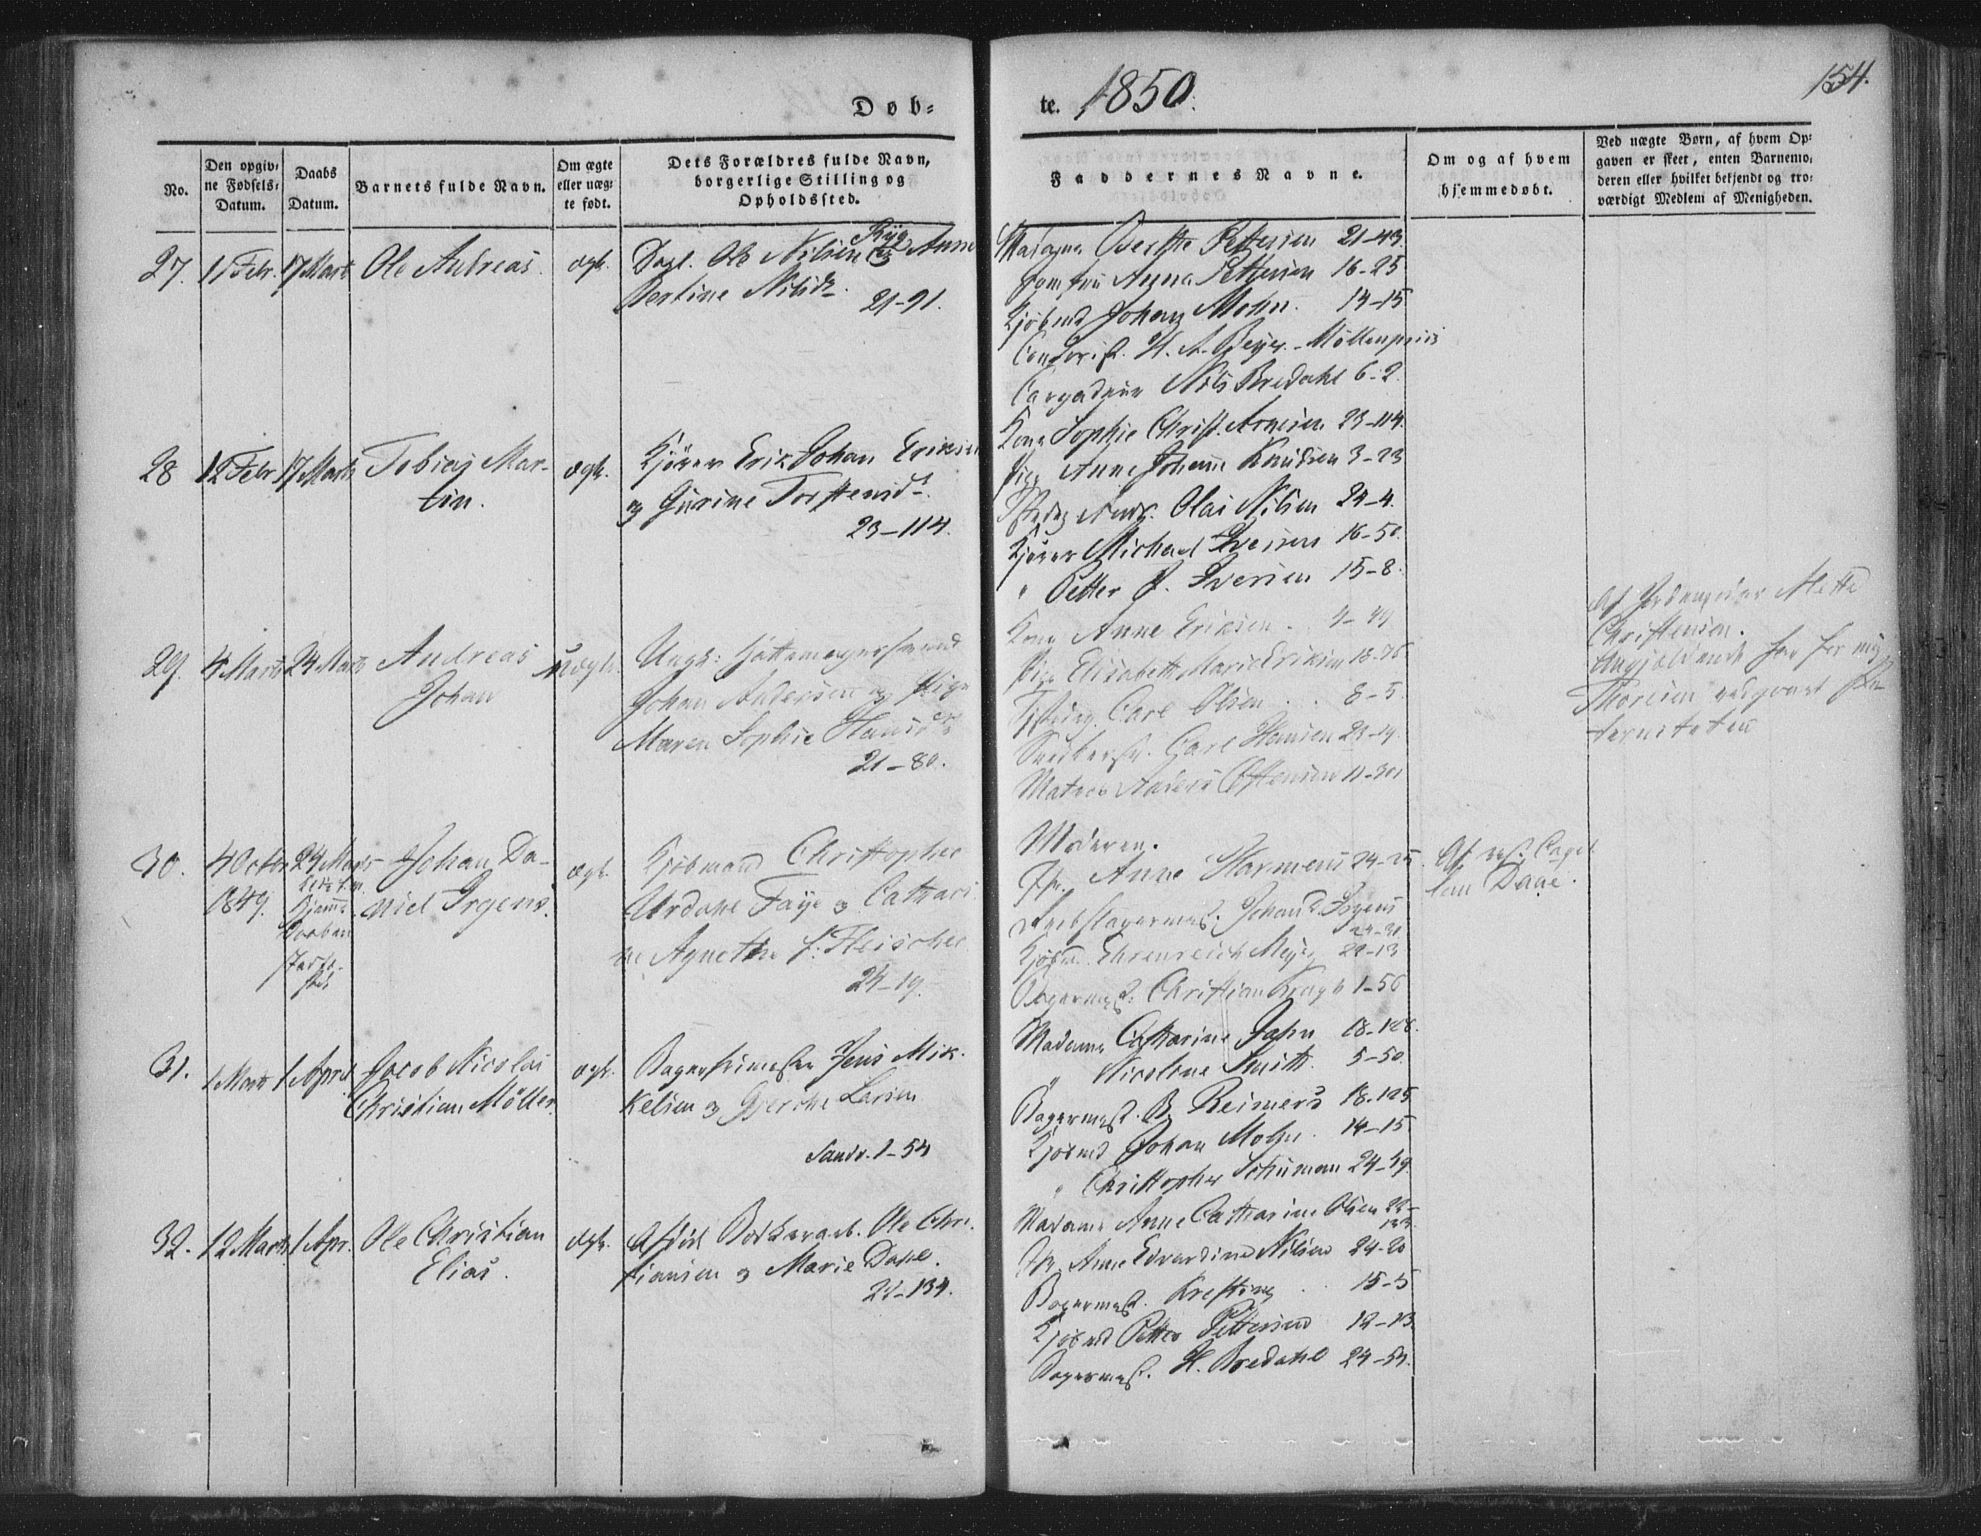 Døb-
te. 1850.
154.
No.
Den opgiv-
ne Fødsels-
Datum.
Daabs
Datum.
Barnets fulde Navn.
Om ægte
eller uæg-
te født.
Dets Forældres fulde Navn,
borgerlige Stilling og
Opholdssted.
Faddernes Navne.
Om og af hvem
hjemmedøbt.
Ved uægte Børn, af hvem Op-
gaven er skeet, enten Barnemo-
deren eller hvilket bekjendt og tro-
værdigt Medlem af Menigheden.
27. 11 Febr. 17 Marts Ole Andreas. ægte.
Dagl. Ole Nilsen og Anne
Bertine Nilsd.
21-91.
Madame Berthe Pettersen 21-43.
Jomfru Anna Pettersen 16-25
Kjøbmd Johan Mohn. 14-15
Contorist. H. A. Beyer. Møllenpriis
Cargadeur Nils Bredahl 6-2.
28 12 Febr 17 Marts Tobias Mar-
tin. ægte.
Kjører Erik Johan Eriksen
og Gurine Torstensd.
23-114.
Kone Sophie Christ. Arnesen 23-114.
Pige Anne Johanne Knudsen 3-23
Olai Nilsen 24-4.
Kjører Michael Iversen 16-50.
" Petter J. Iversen 15-8.
29. 4 Marts 24 Marts Andreas
Johan uægte.
Ungk: Hattemagersvend
Johan Andersen og Pige
Maren Sophie Hansd.
21-80.
Kone Anne Eriksen.
Pige Elisabeth Marie Eriksen 18-76
Carl Olsen . . 8-5.
Carl Hansen 23-19.
Matros Anders
Af Jordemoder Mette
Christensen.
Angjældende har for mig
terniteten
30. 4 Octbr
1849. 24 Marts
Hjemme
Daaben
stadfæ-
stet
Johan Da-
niel Irgens. ægte.
Kjøbmand Christopher
Urdahl Faye og Cathari-
ne Agnethe f. Fleischer
24-19.
Moderen.
Anne Harmens 24-25
Johan D. Irgens
24-31
Kjøbm. Ehrenreich Meyer 22-13
Bagermest. Christian Krogh 1-56
Af res. Capel-
lan Daae.
31. 1 Marts 1 April Jacob Nicolai
Christian Møller. ægte.
Bagerskrivester Jens Mik-
kelsen og Gjerche Larsen
Sandv. 1-54
Madame Catharine Jahn 18-128.
" Nicoline Smith 5-50
Bagermest. B. Reimers 18-125
Kjøbmd Johan Mohn. 14-15
" Christopher Schuman 24-49.
32. 12 Marts 1 Apr. Ole Christian
Elias. ægte.
Afskd. Bødkerarb. Ole Chri-
stiansen og Marie Dahl.
22-134.
Madame Anne Catharine Olsen 22-
134
Anne Edvardine Nilsen 24-20
Bagermest. Kresting . 15-5
Kjøbmd Petter Pettersen 12-13
Bagermest. H. Bredahl 24-54.